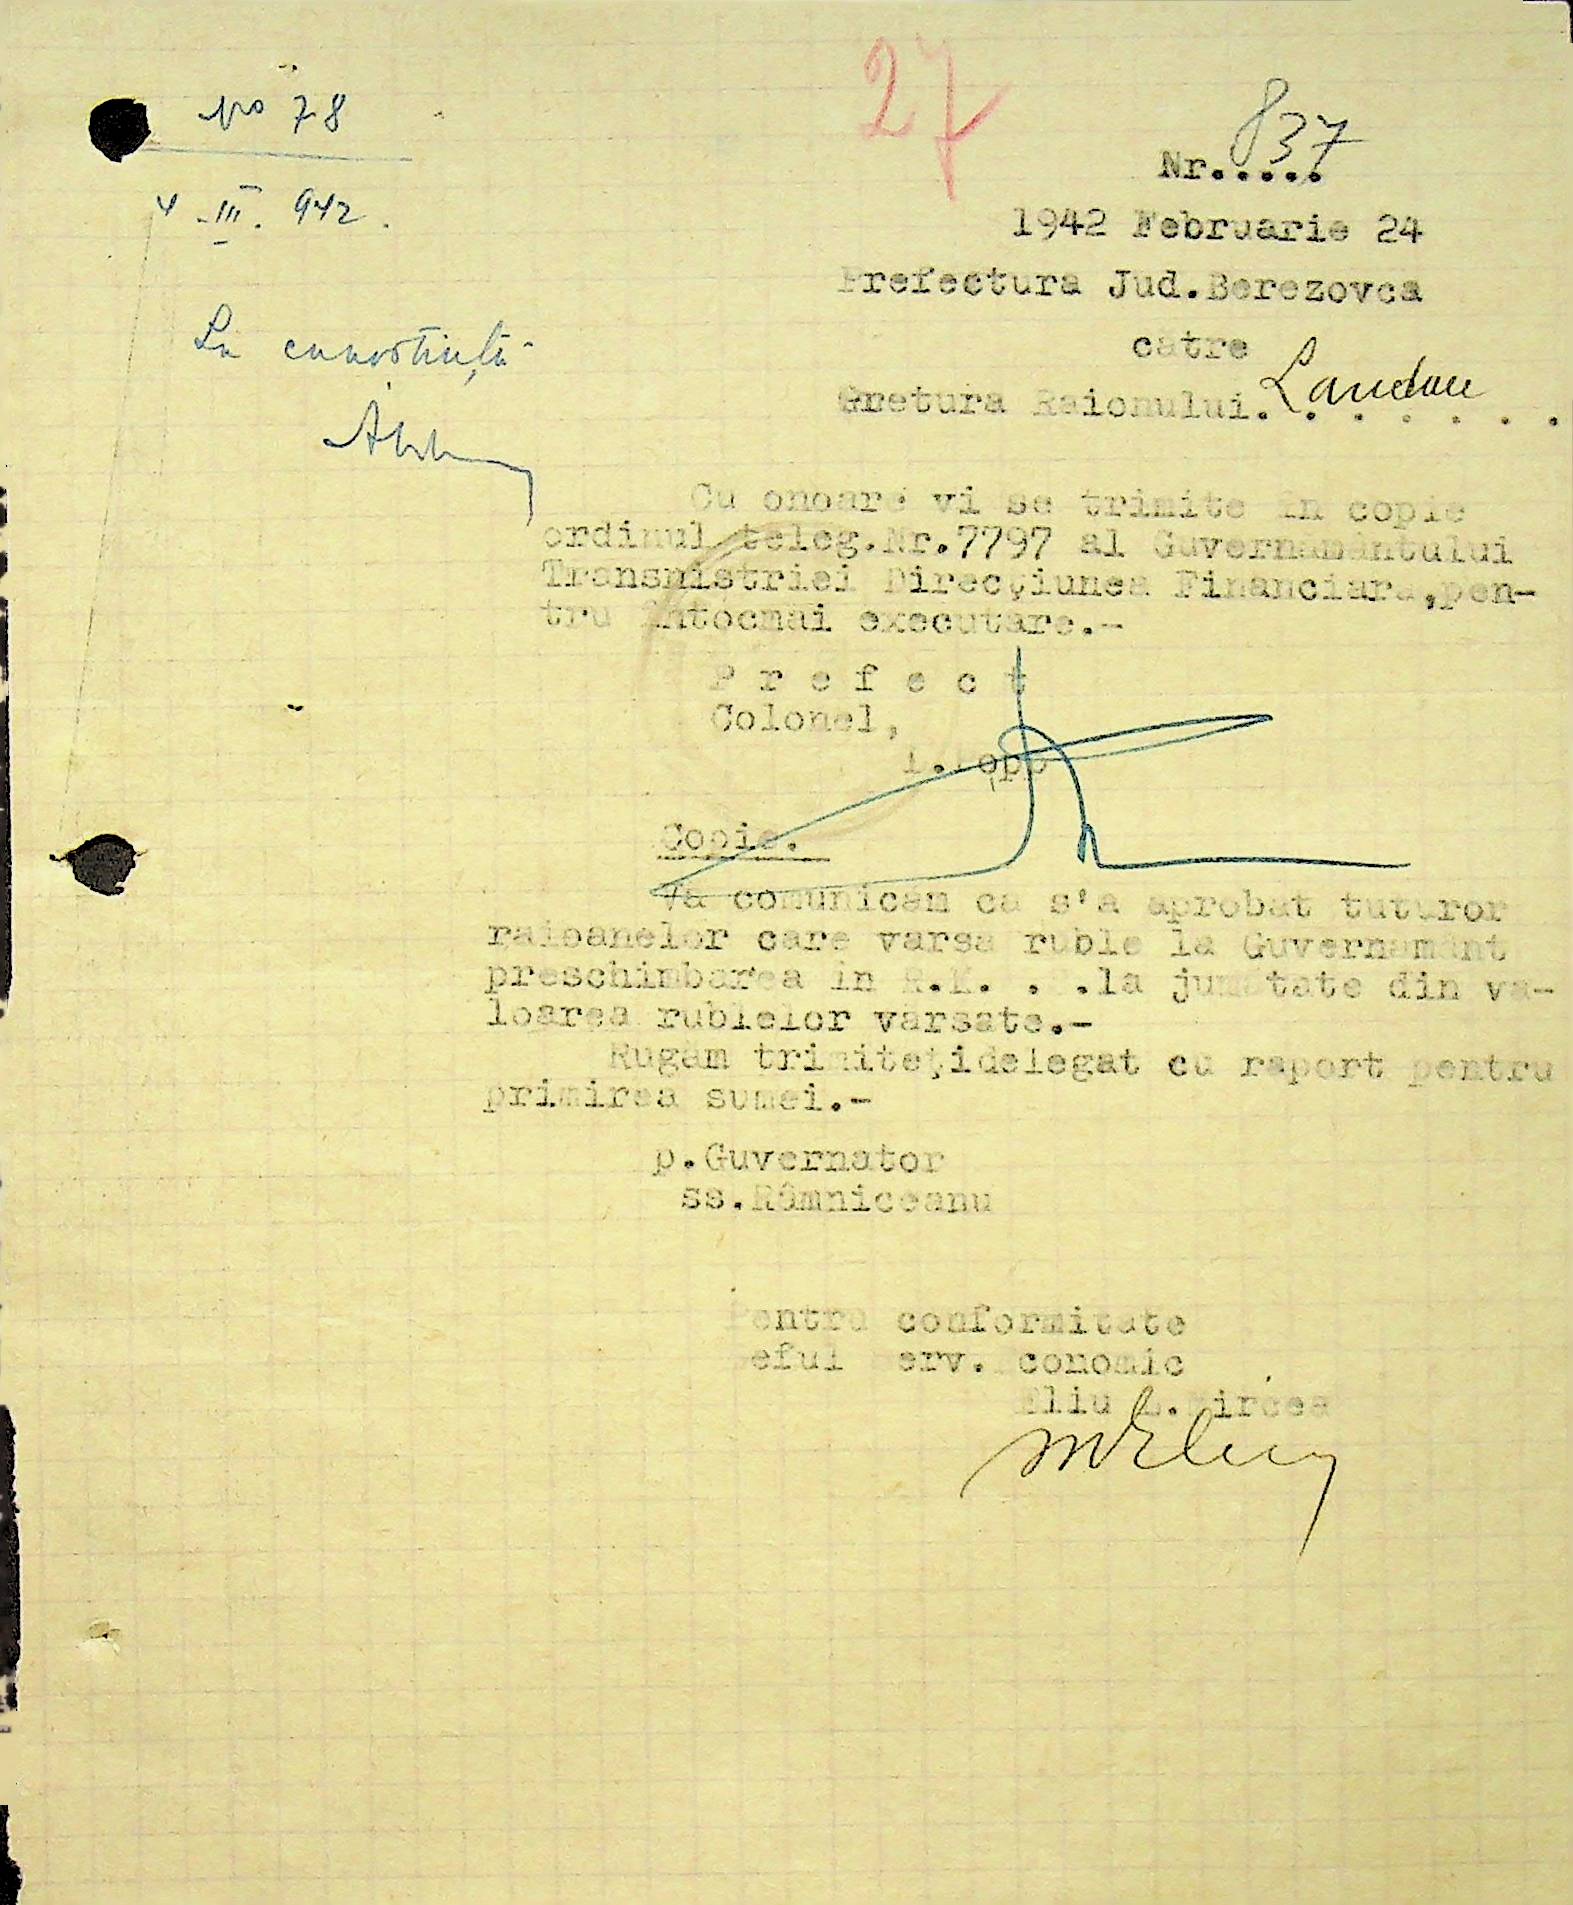 27
No 78
4.III.942.
La cunostiință
Nr.....837
1942 Februarie 24
Prefectura Jud.Berezovca
catre
Pretura Raionului. Landau . . . . . .
Cu onoare vi se trimite in copie
ordinul teleg.Nr.7797 al Guvernamântului
Transnistriei Direcţiunea Financiara,pen-
tru întocmai executare.-
P r e f e c t
Colonel,
Copie.
Va comunicăm ca s'a aprobat tuturor
raioanelor care varsa ruble la Guvernamânt
preschimbarea in R.K. . .la jumatate din va-
loarea rublelor vărsate.-
Rugăm trimiteţidelegat cu raport pentru
primirea sumei.-
p.Guvernator
ss.Râmniceanu
Pentru conformitate
eful erv. conomic
Eliu L.Mircea